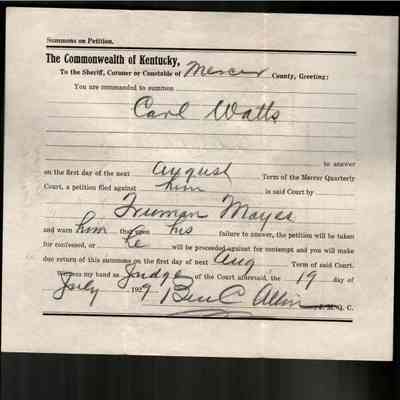 Summons on Petition.
The Commonwealth of Kentucky,
To the Sheriff, Coroner or Constable of Mercer County, Greeting:
You are commanded to summon
Carl Watts
to answer
on the first day of the next August Term of the Mercer Quarterly
Court, a petition filed against him is said Court by
Truman Mayes
and warn him that upon his failure to answer, the petition will be taken
for confessed, or he will be proceeded against for contempt and you will make
due return of this summons on the first day of next Aug Term of said Court.
Witness my hand as Judge of the Court aforesaid, the 19 day of
July 1929. Ben C Allin J. M. Q. C.